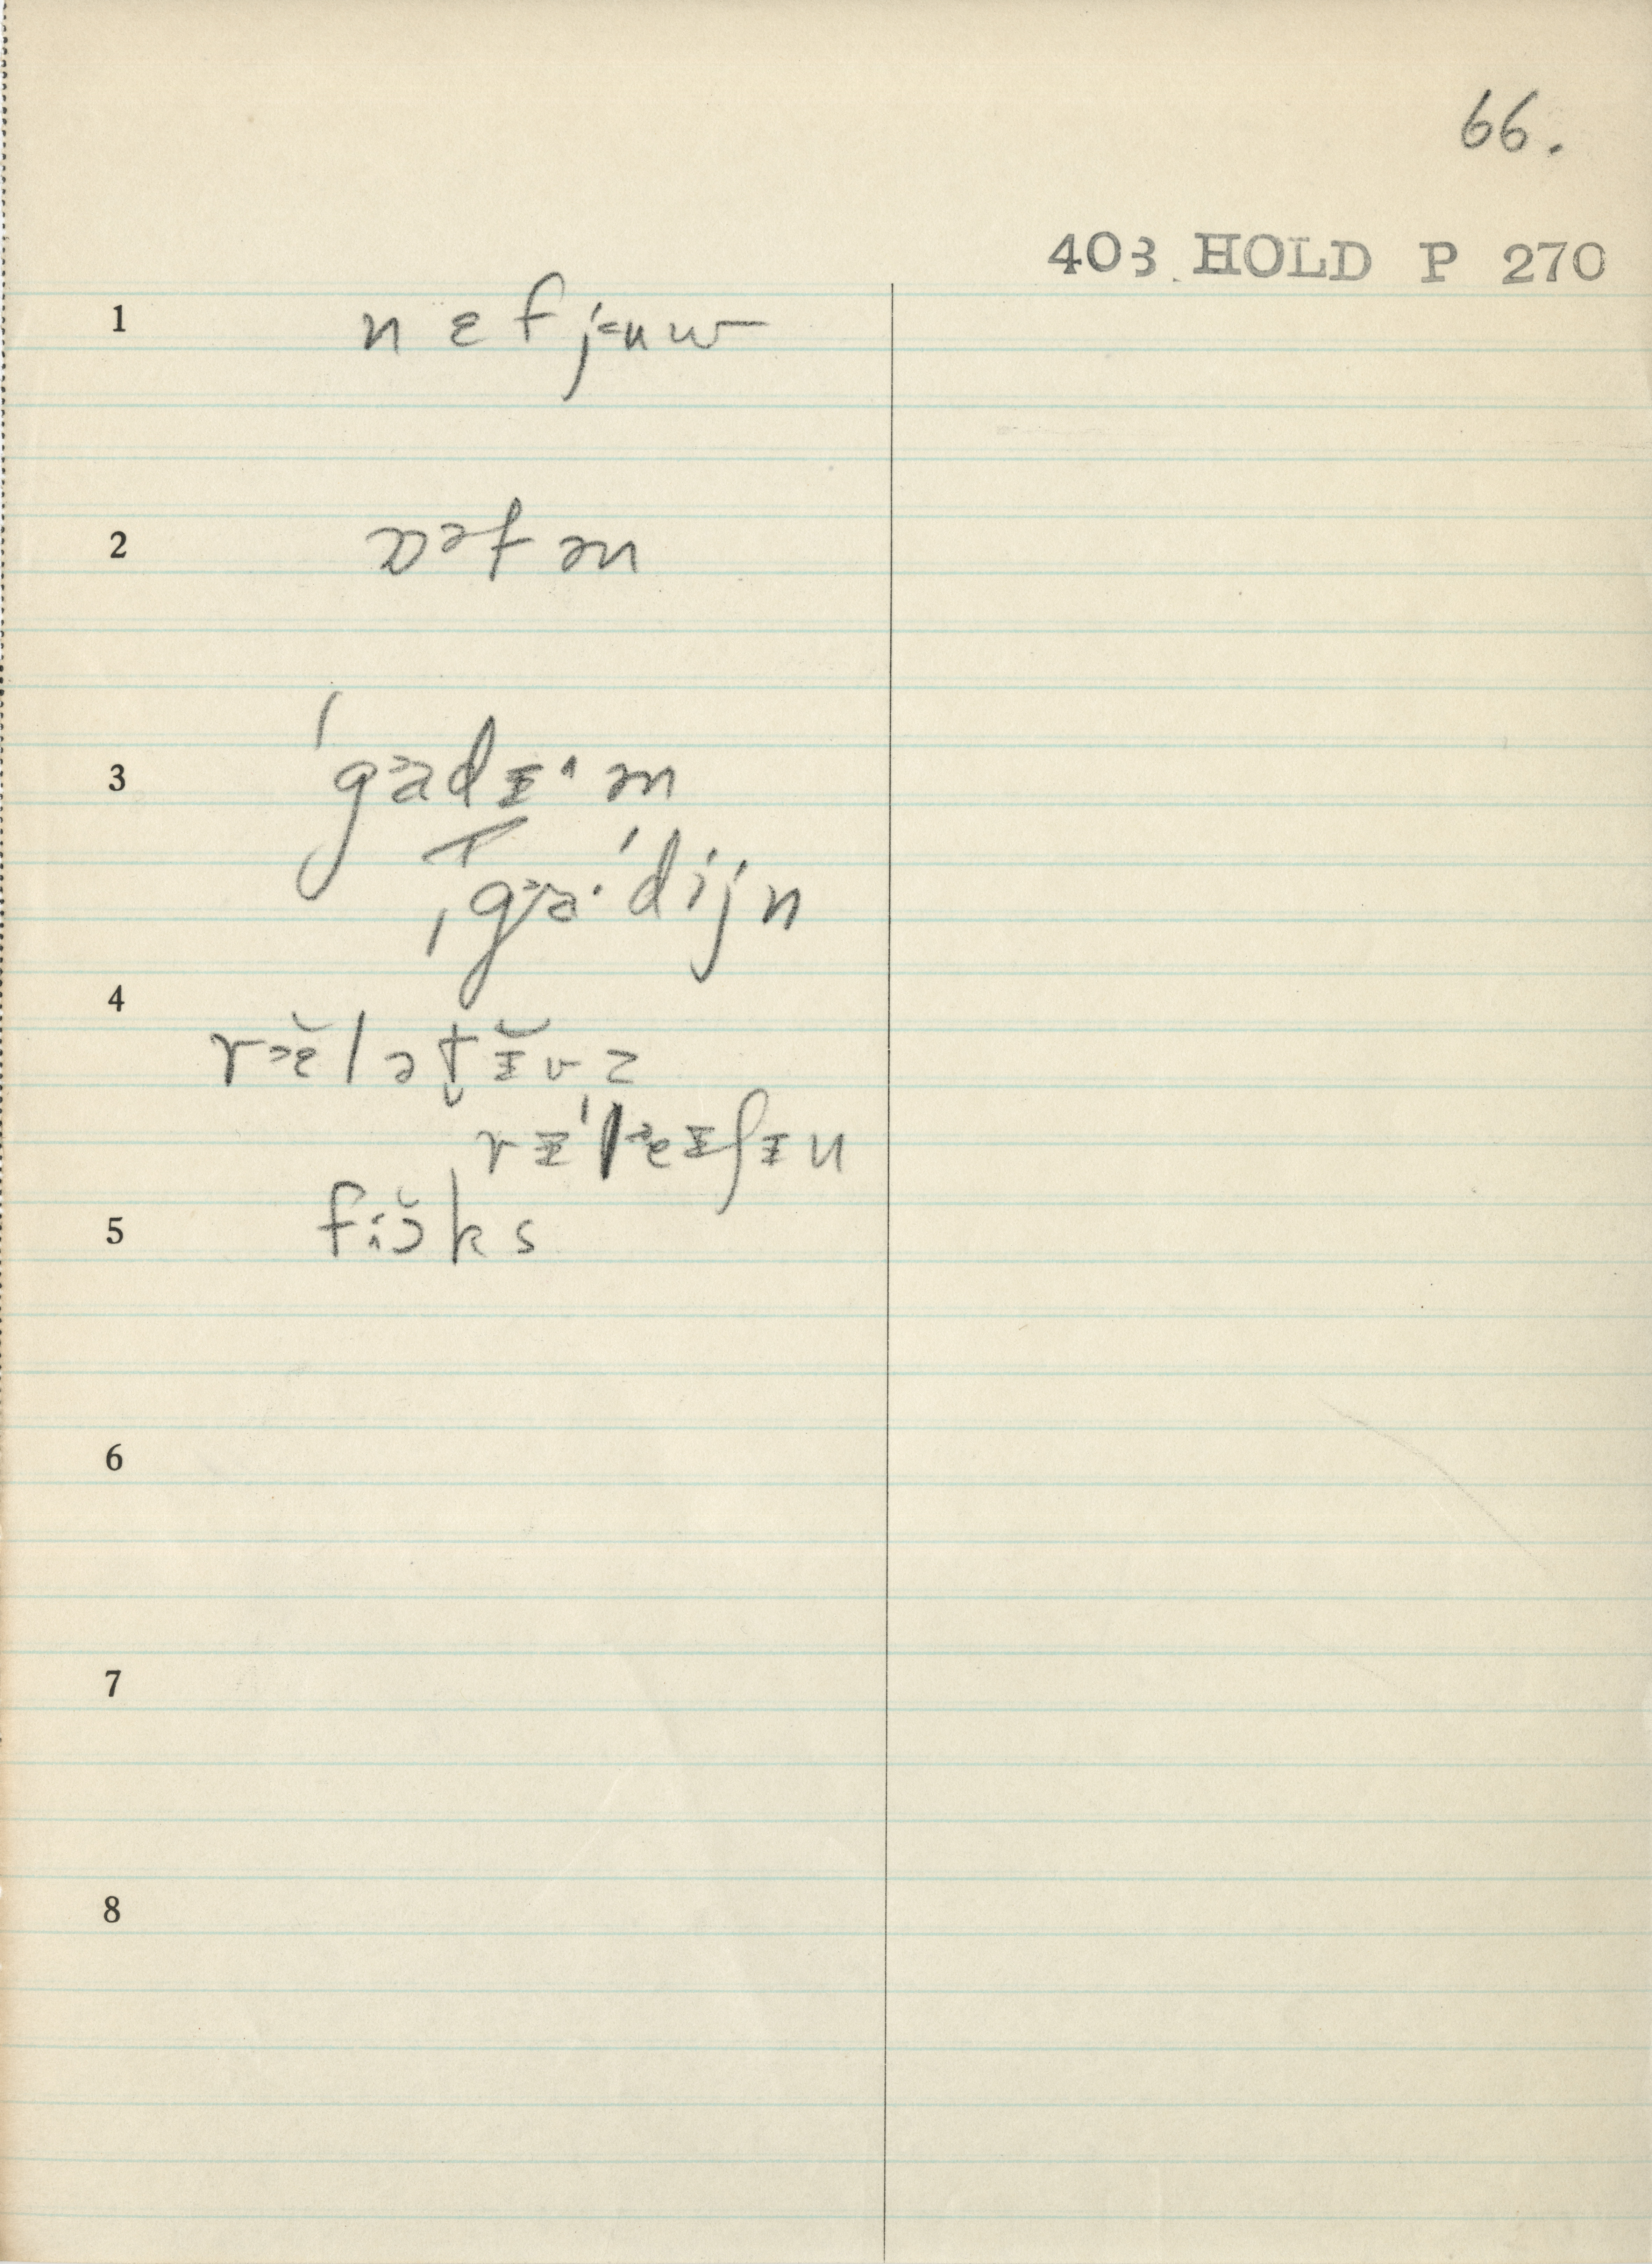 66.
403 HOLD P 270
1 nɛfjʉw
2 ɔəfən
3 ˈgadɪ·ən
ˌga·ˈdijn
4 rɛ̆lətɪ̆vz
rɪˈleɪʃɪn
5 fɔ̆ks
6
7
8